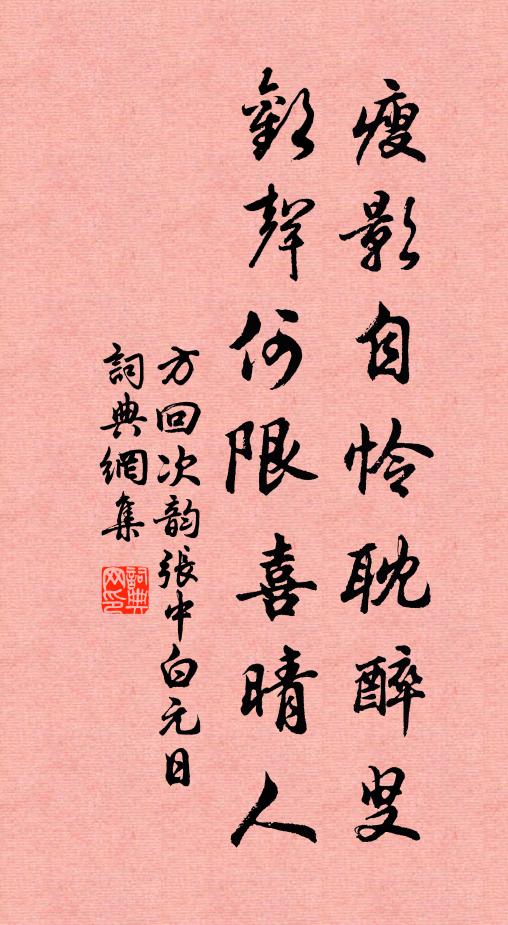 瘦影自怜耽醉叟
歡聲何限喜晴人
方回次韵張中白元日
詞典網集
詞典网印